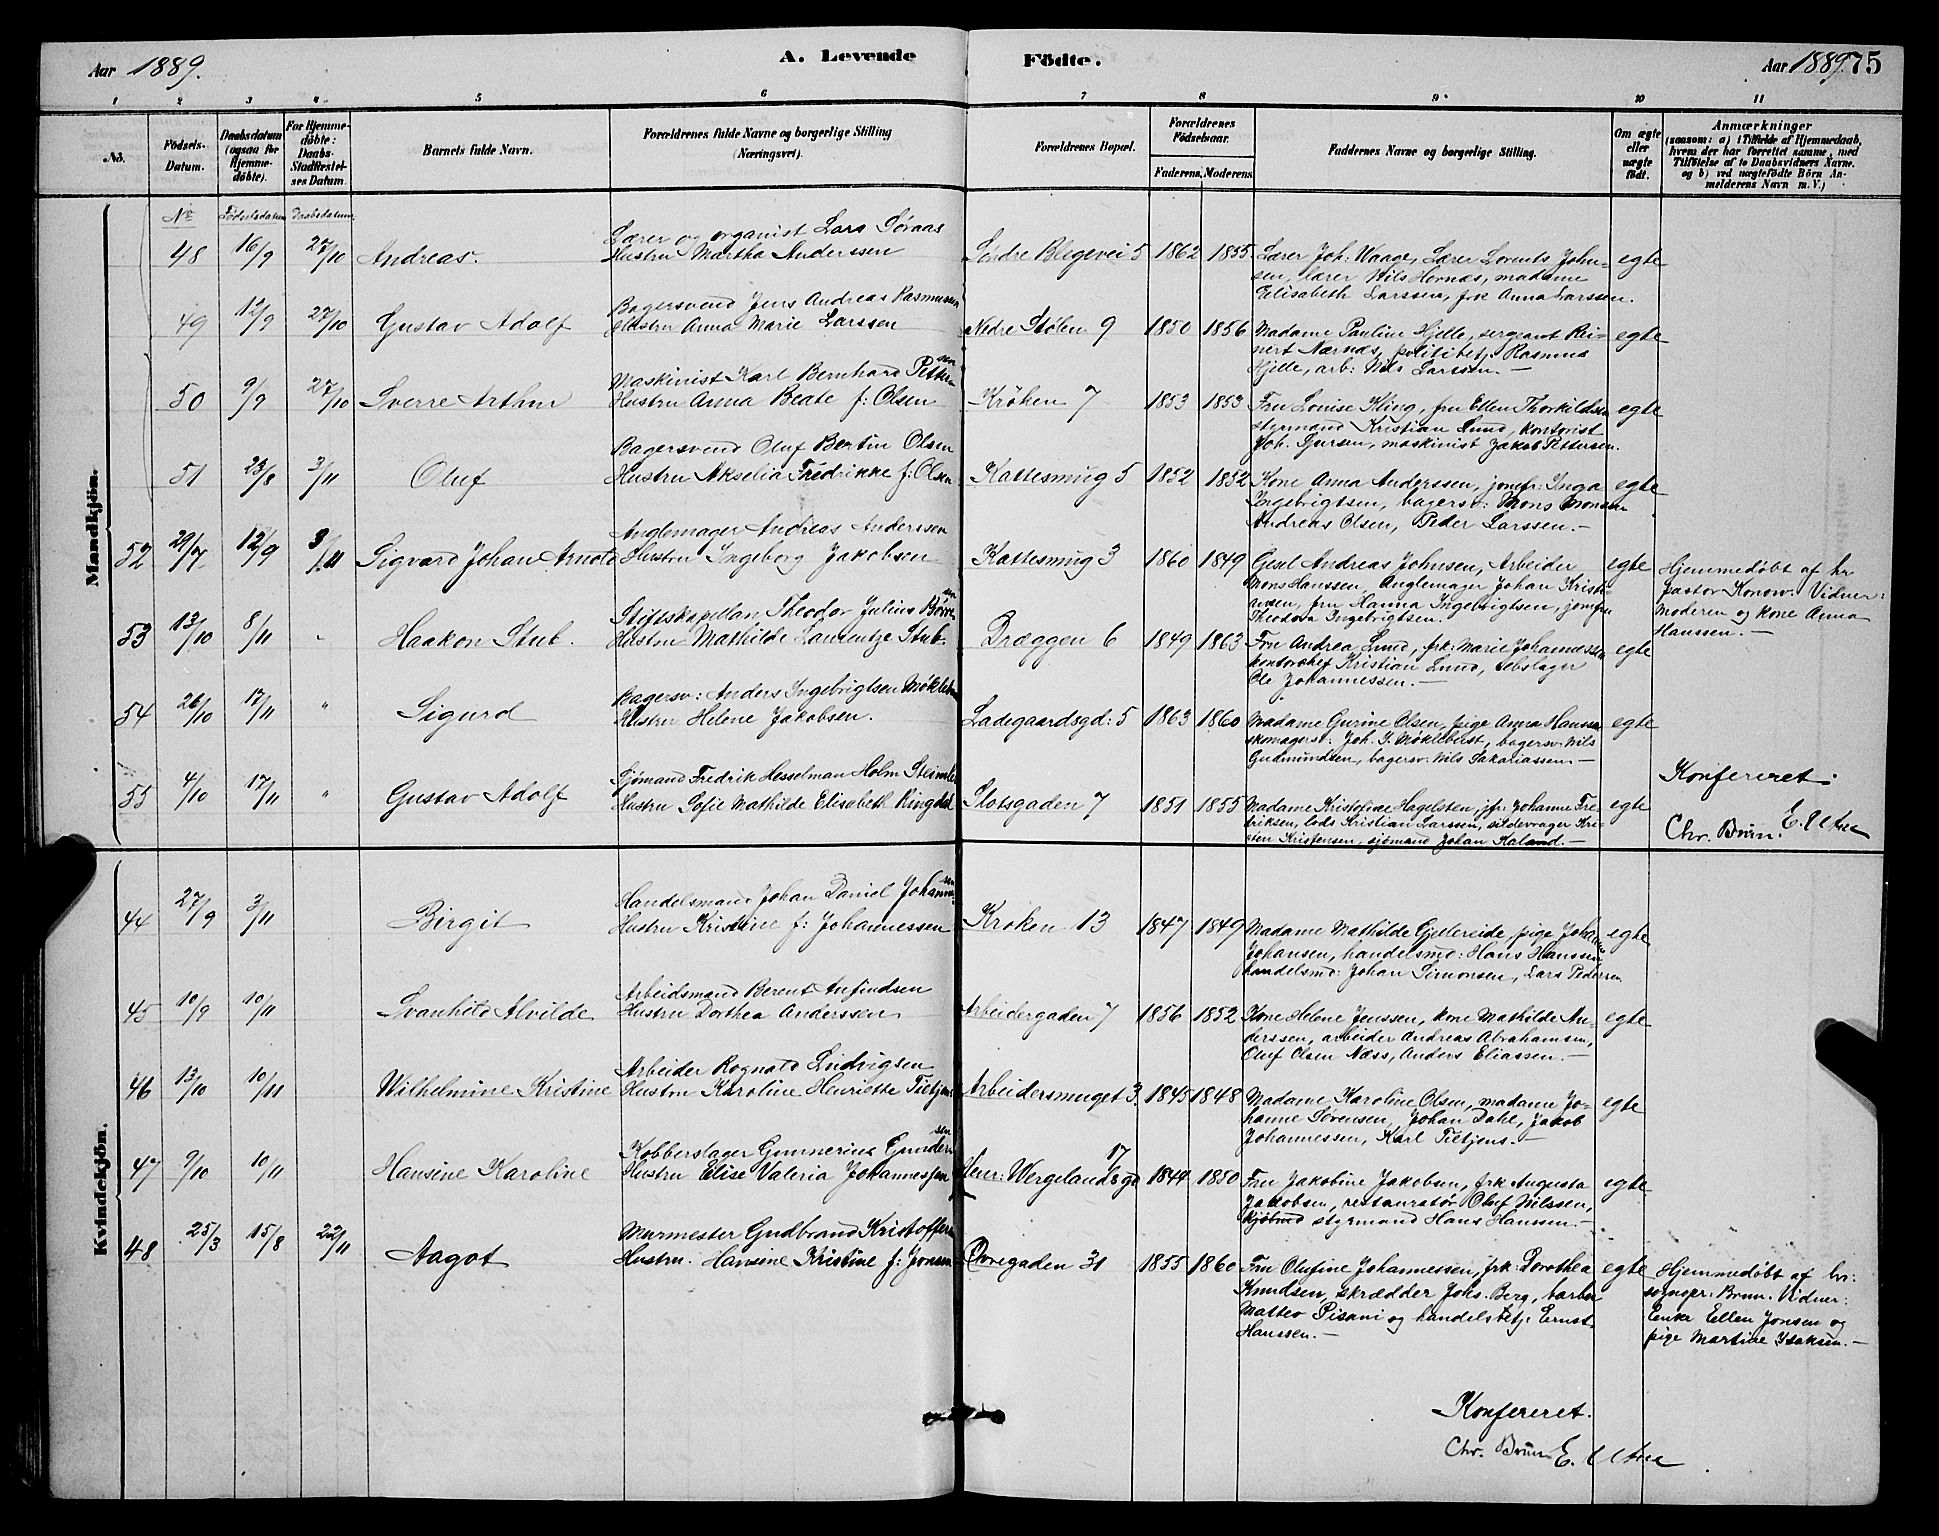 Aar 1889.
A. Levende Födte.
Aar 1889. 75
1 2 3 4 5 6 7 8 9 10 11
No.
Födsels-Datum.
Daabsdatum (ogsaa for Hjemme-döbte).
For Hjemme-döbte: Daabs-Stadfæstelses Datum.
Barnets fulde Navn.
Forældrenes fulde Navne og borgerlige Stilling (Næringsvei).
Forældrenes Bopæl.
Forældrenes Födselsaar.
Faderens. Moderens.
Faddernes Navne og borgerlige Stilling.
Om ægte eller uægte födt.
Anmærkninger
(saasom: a) i Tilfælde af Hjemmedaab, hvem der har forrettet samme, med Tilföielse af to Daabsvidners Navne. og b) ved uægtefödte Börn Anmelderens Navn m. V.)
Mandkjön.
No Födselsdatum Daabsdatum
48 16/9 27/10 Andreas. Lærer og organist Lars Søraas
Hustru Martha Anderssen Søndre Blegevei 5 1862 1855 Lærer Joh: Waage, Lærer Lorents John-
sen, lærer Nils Hernæs, madame
Elisabeth Larssen, frk Anna Larssen. egte
49 12/9 27/10 Gustav Adolf Bagersvend Jens Andreas Rasmussen
Hustru Anna Marie Larssen Nedre Stølen 9 1850 1856 Madame Pauline Hjelle, sergeant Rei-
nert Nærnæs, politibetj. Rasmus
Hjelle, arb: Nils Larssen. — egte
50 9/9 27/10 Sverre Arthur Maskinist Karl Bernhard Pettersen
Hustru Anna Beate f: Olsen Krøken 7 1853 1853 Fru Louise Kling, fru Ellen Thorkildsen
styrmand Kristian Lund, kontorist
Joh. Sjursen, maskinist Jakob Pettersen. egte
51 23/8 3/11 Oluf Bagersvend Oluf Bertin Olsen
Hustru Akselia Fredrikke f: Olsen Kattesmug 5 1852 1852 Kone Anna Anderssen, jomfr: Inga
Ingebrigtsen, bagersv: Mons Monsen
Andreas Olsen, Peder Larssen. — egte
52 29/7 12/9 3/11 Sigvard Johan Arnold Anglemager Andreas Anderssen
Hustru Ingeborg Jakobsen Kattesmug 3 1860 1849 Gesel Andreas Johnsen, Arbeider
Mons Hanssen, Anglemager Johan Kristi-
ansen, fru Hanna Ingebrigtsen, jomfru
Theodora Ingebrigtsen. egte Hjemmedøbt af hr
pastor Konow. Vidner:
moderen og kone Anna
Hanssen. —
53 13/10 8/11 " Haakon Stub. Stiftskapellan Theodor Julius Børresen
Hustru Mathilde Laurentze Stub Dræggen 6 1849 1863 Fru Andrea Lund, frk: Marie Johannessen
kontorchef Kristian Lund, rebslager
Ole Johannessen. — egte
54 26/10 17/11 " Sigurd Bagersv: Anders Ingebrigtsen Møklebust
Hustru Helene Jakobsen. Ladegaardsgd: 5 1863 1860 Madame Gurine Olsen, pige Anna Hanssen
skomagersv: Joh. I. Møklebust, bagersv: Nils
Gudmundsen, bagersv: Nils Sakaliassen — egte
55 4/10 17/11 " Gustav Adolf Sjømand Fredrik Hesselman Holm
Hustru Sofie Mathilde Elisabeth Ringdal Slotsgaden 7 1851 1855 Madame Kristofine Hagelsten, jfr: Johanne Fre-
driksen, lods Kristian Larssen, sildevrager Kri-
sten Kristensen, sjømand Johan Kaland. — egte
Konfereret.
Chr. Brun.
Kvindekjön.
44 27/9 3/11 Birgit Handelsmand Johan Daniel Johannessen
Hustru Kristine f: Johannessen Krøken 13 1847 1849 Madame Mathilde Gjellereide, pige Johanne
Johansen, handelsmd: Hans Hanssen,
handelsmd: Johan Simonsen, Lars Pedersen egte
45 10/9 10/11 Svanhild Alvilde Arbeidsmand Berent Anfindsen
Hustru Dorthea Anderssen Arbeidergaden 7 1856 1852 Kone Helene Jenssen, kone Mathilde An-
derssen, arbeider Andreas Abrahamsen,
Oluf Olsen Næss, Anders Eliassen. — egte
46 13/10 10/11 Wilhelmine Kristine Arbeider Rognald Ludvigsen
Hustru Karoline Henriette Tietjens Arbeidersmuget 3. 1845 1848 Madame Karoline Olsen, madame Jo-
hanne Sørensen, Johan Dahl, Jakob
Johannessen, Karl Tietjens. — egte
47 9/10 10/11 Hansine Karoline Kobberslager Gunnerius Gundersen
Hustru Elise Valeria Johannessen Henr: Wergelandsgd 17 1844 1850 Fru Jakobine Jakobsen, frk Augusta
Jakobsen, restauratør Oluf Nilssen,
styrmand Hans Hanssen. — egte
48 25/3 15/8 22/11 Aagot Murmester Gudbrand Kristoffersen
Hustru. Hansine Kristine f: Jonsen Øvregaden 31 1855 1860 Fru Olufine Johannessen, frk: Dorothea
Knudsen, skrædder Johs. Berg, barber
Matteo Pisani og handelsbetj: Ernst
Hanssen. — egte Hjemmedøbt af hr:
sognepr: Brun. Vidner:
Enke Ellen Jonsen og
pige Martine Isaksen. —
Konfereret.
Chr. Brun